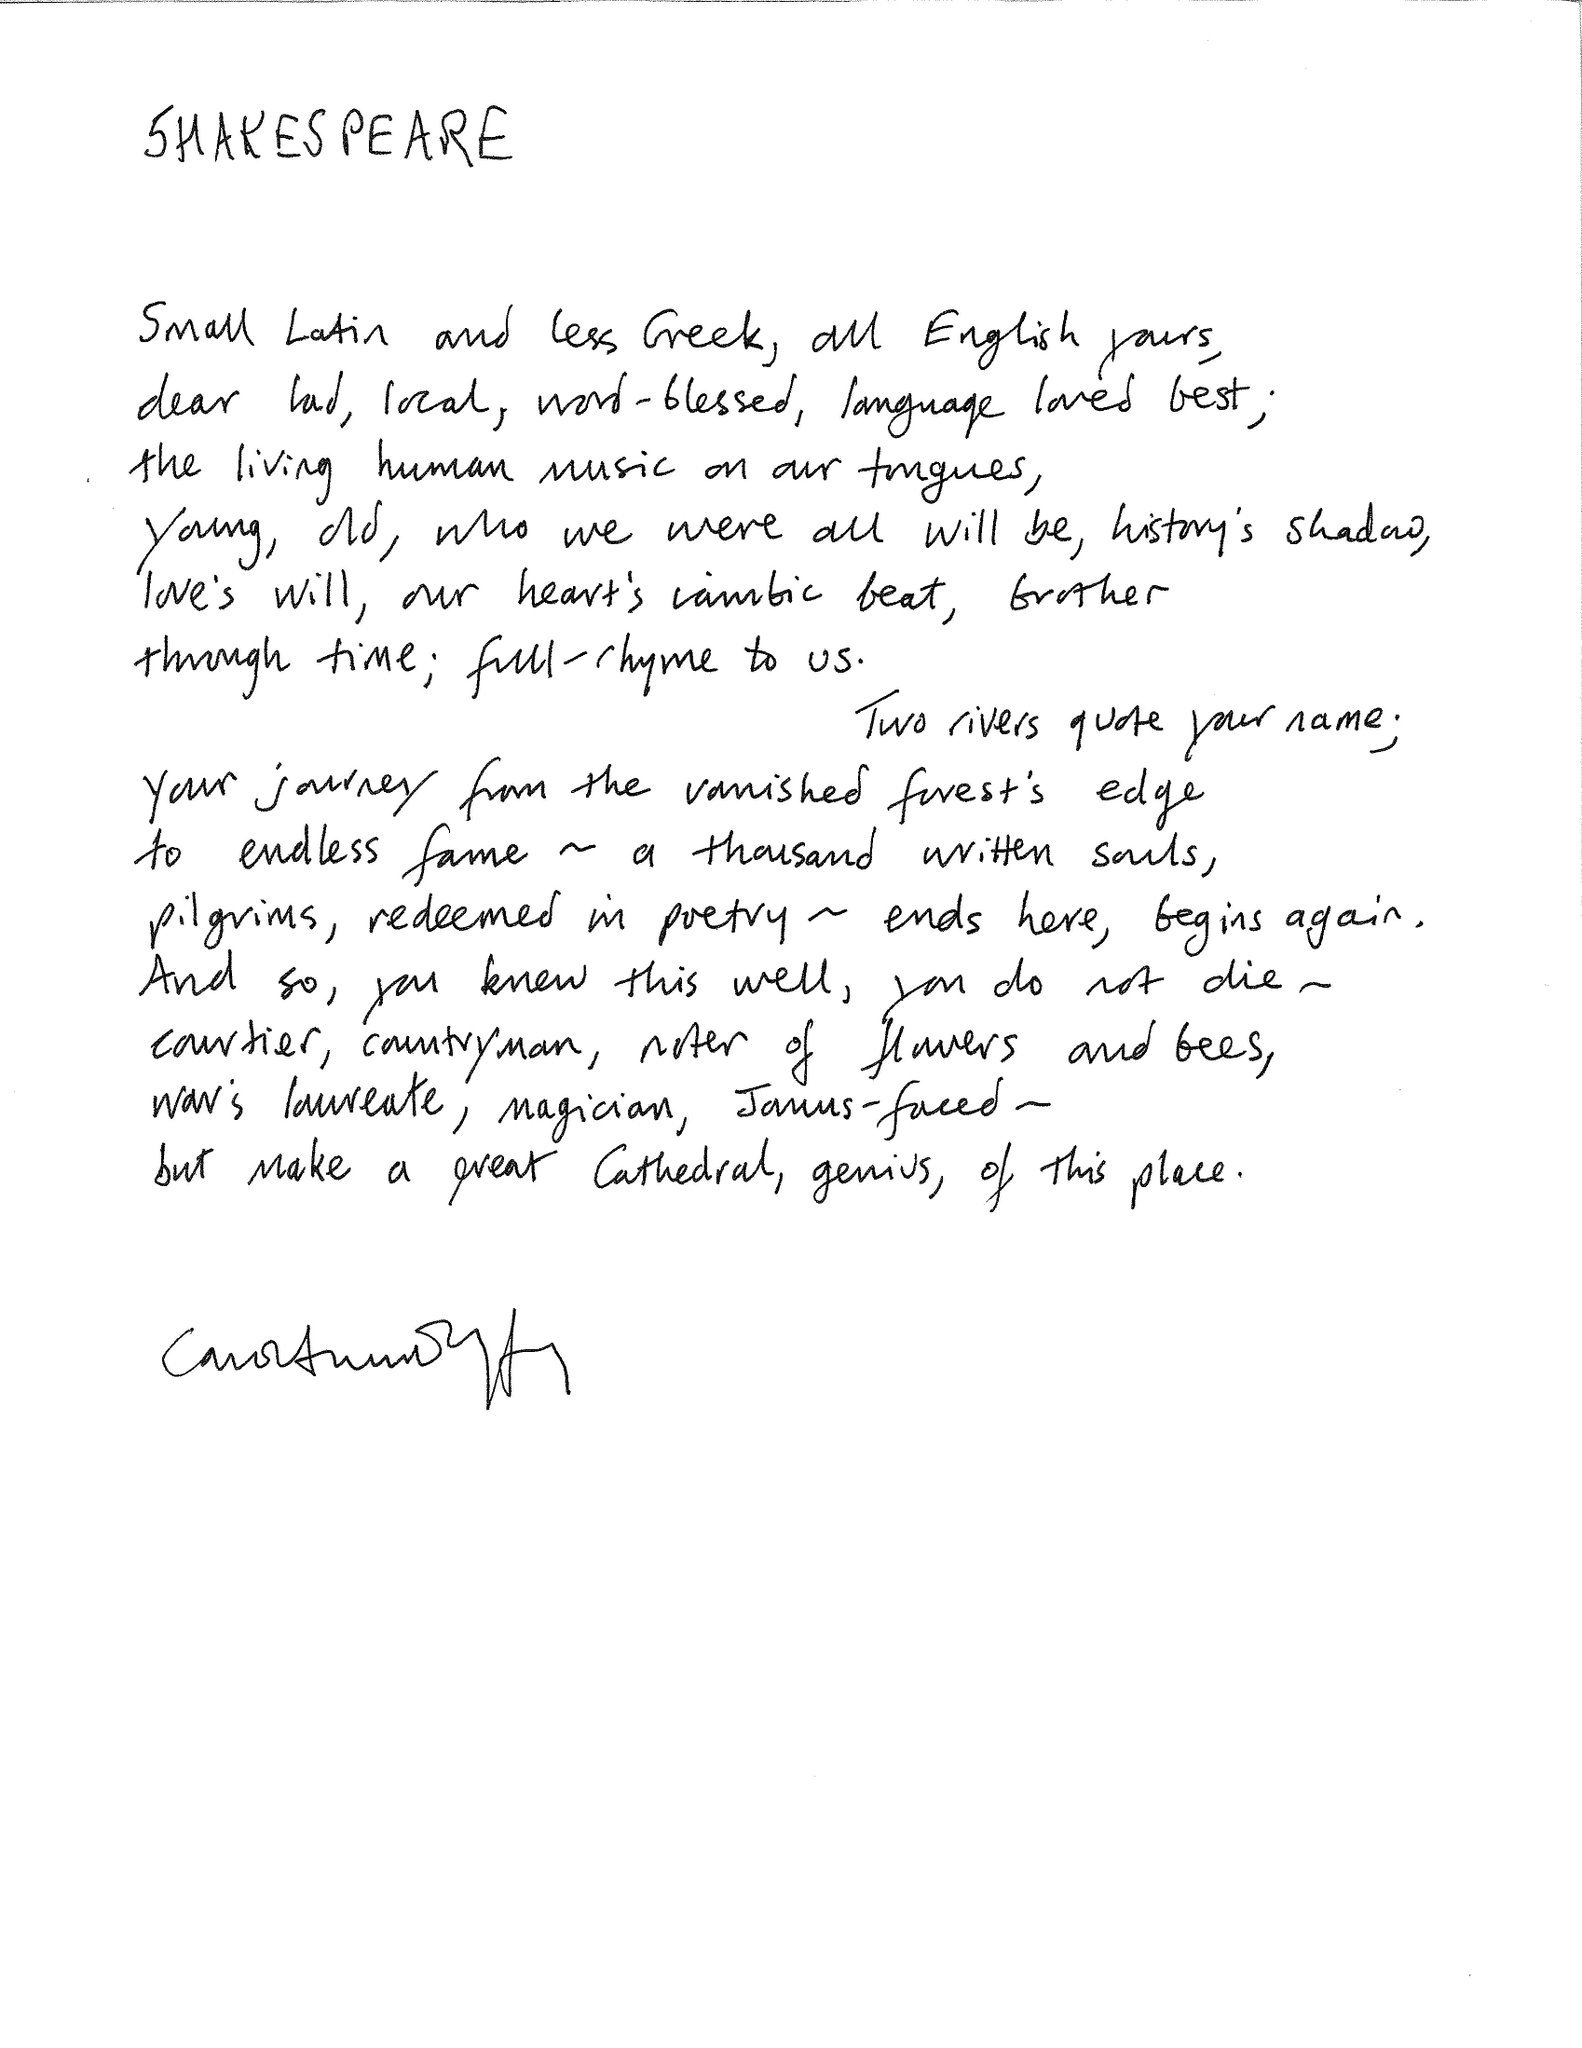 SHAKESPEARE
Small Latin and less Greek, all English yours,
dear lad, local, word-blessed, language loved best;
the living human music on our tongues,
young, old, who we were all will be, history's shadow,
love's will, our heart's iambic beat, brother
through time; full-rhyme to us.
Two rivers quote your name;
your journey from the vanished forest's edge
to endless fame ~ a thousand written souls,
pilgrims, redeemed in poetry ~ ends here, begins again.
And so, you knew this well, you do not die ~
courtier, countryman, noter of flowers and bees,
war's laureate, magician, Janus-faced ~
but make a great Cathedral, genius, of this place.
Carol Ann Duffy